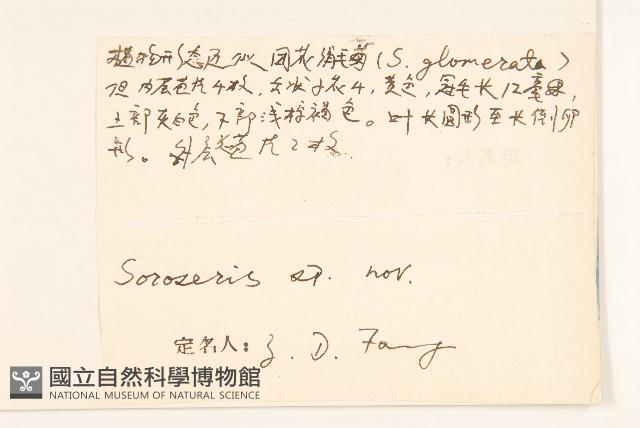 植物形态近似团花绢毛菊(S. glomerata)
但内层苞片4枚,舌状小花4,黄色,冠毛长12毫米,
上部灰白色,下部浅棕褐色。叶长圆形至长倒卵
形。外层苞片2枚.
Soroseris sp. nov.
定名人: Z. D. Fang
國立自然科學博物館
NATIONAL MUSEUM OF NATURAL SCIENCE